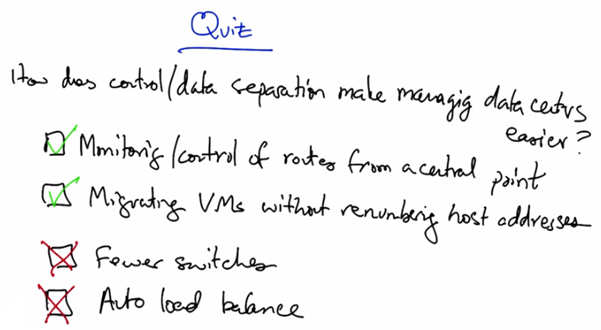 Quiz
How does control/data separation make managig data centers
easier?
Monitorig/control of routes from a central point
Migrating VMs without renumbering host addresses
Fewer switches
Auto load balance